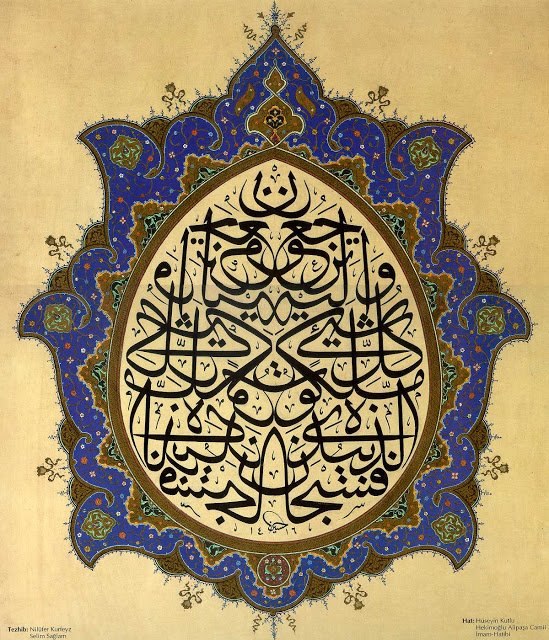 فسبحان
الذي بيده
ملكوت كل شيء
وإليه
ترجعون
١٤١٦
Tezhib: Nilüfer Kurfeyz
Selim Sağlam
Hat: Hüseyin Kutlu
Hekimoğlu Alipaşa Camii
İmam-Hatibi